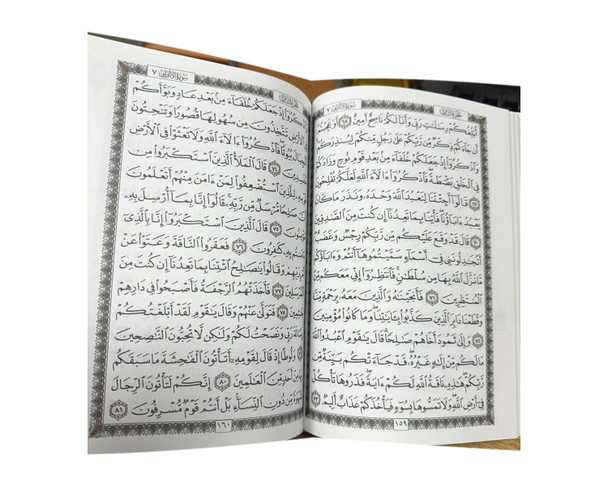 سُورَةُ الأَعْرَافِ ٧
أُبَلِّغُكُمْ رِسَٰلَٰتِ رَبِّي وَأَنَا۠ لَكُمْ نَاصِحٌ أَمِينٌ ٦٨ أَوَعَجِبْتُمْ
أَن جَآءَكُمْ ذِكْرٌ مِّن رَّبِّكُمْ عَلَىٰ رَجُلٍ مِّنكُمْ لِيُنذِرَكُمْ
وَٱذْكُرُوٓاْ إِذْ جَعَلَكُمْ خُلَفَآءَ مِنۢ بَعْدِ قَوْمِ نُوحٍ وَزَادَكُمْ
فِي ٱلْخَلْقِ بَصْۜطَةً فَٱذْكُرُوٓاْ ءَالَآءَ ٱللَّهِ لَعَلَّكُمْ تُفْلِحُونَ
٦٩ قَالُوٓاْ أَجِئْتَنَا لِنَعْبُدَ ٱللَّهَ وَحْدَهُۥ وَنَذَرَ مَا كَانَ
يَعْبُدُ ءَابَآؤُنَا فَأْتِنَا بِمَا تَعِدُنَآ إِن كُنتَ مِنَ ٱلصَّٰدِقِينَ
٧٠ قَالَ قَدْ وَقَعَ عَلَيْكُم مِّن رَّبِّكُمْ رِجْسٌ وَغَضَبٌ
أَتُجَٰدِلُونَنِي فِيٓ أَسْمَآءٍ سَمَّيْتُمُوهَآ أَنتُمْ وَءَابَآؤُكُم
مَّا نَزَّلَ ٱللَّهُ بِهَا مِن سُلْطَٰنٍ فَٱنتَظِرُوٓاْ إِنِّي مَعَكُم مِّنَ
ٱلْمُنتَظِرِينَ ٧١ فَأَنجَيْنَٰهُ وَٱلَّذِينَ مَعَهُۥ بِرَحْمَةٍ مِّنَّا
وَقَطَعْنَا دَابِرَ ٱلَّذِينَ كَذَّبُواْ بِـَٔايَٰتِنَا وَمَا كَانُواْ مُؤْمِنِينَ
٧٢ وَإِلَىٰ ثَمُودَ أَخَاهُمْ صَٰلِحًا قَالَ يَٰقَوْمِ ٱعْبُدُواْ ٱللَّهَ
مَا لَكُم مِّنْ إِلَٰهٍ غَيْرُهُۥ قَدْ جَآءَتْكُم بَيِّنَةٌ مِّن
رَّبِّكُمْ هَٰذِهِۦ نَاقَةُ ٱللَّهِ لَكُمْ ءَايَةً فَذَرُوهَا تَأْكُلْ
فِيٓ أَرْضِ ٱللَّهِ وَلَا تَمَسُّوهَا بِسُوٓءٍ فَيَأْخُذَكُمْ عَذَابٌ أَلِيمٌ ٧٣
١٥٩
سُورَةُ الأَعْرَافِ ٧
إِذْ جَعَلَكُمْ خُلَفَآءَ مِنۢ بَعْدِ عَادٍ وَبَوَّأَكُمْ
ٱلْأَرْضِ تَتَّخِذُونَ مِن سُهُولِهَا قُصُورًا وَتَنْحِتُونَ
بُيُوتًا فَٱذْكُرُوٓاْ ءَالَآءَ ٱللَّهِ وَلَا تَعْثَوْاْ فِي ٱلْأَرْضِ
٧٤ قَالَ ٱلْمَلَأُ ٱلَّذِينَ ٱسْتَكْبَرُواْ مِن
لِلَّذِينَ ٱسْتُضْعِفُواْ لِمَنْ ءَامَنَ مِنْهُمْ أَتَعْلَمُونَ
صَٰلِحًا مُّرْسَلٌ مِّن رَّبِّهِۦ قَالُوٓاْ إِنَّا بِمَآ أُرْسِلَ بِهِۦ
٧٥ قَالَ ٱلَّذِينَ ٱسْتَكْبَرُوٓاْ إِنَّا بِٱلَّذِيٓ
كَٰفِرُونَ ٧٦ فَعَقَرُواْ ٱلنَّاقَةَ وَعَتَوْاْ عَنْ
رَبِّهِمْ وَقَالُواْ يَٰصَٰلِحُ ٱئْتِنَا بِمَا تَعِدُنَآ إِن كُنتَ مِنَ
ٱلْمُرْسَلِينَ ٧٧ فَأَخَذَتْهُمُ ٱلرَّجْفَةُ فَأَصْبَحُواْ فِي دَارِهِمْ
٧٨ فَتَوَلَّىٰ عَنْهُمْ وَقَالَ يَٰقَوْمِ لَقَدْ أَبْلَغْتُكُمْ
رِسَالَةَ رَبِّي وَنَصَحْتُ لَكُمْ وَلَٰكِن لَّا تُحِبُّونَ ٱلنَّٰصِحِينَ
وَلُوطًا إِذْ قَالَ لِقَوْمِهِۦٓ أَتَأْتُونَ ٱلْفَٰحِشَةَ مَا سَبَقَكُم
مِنْ أَحَدٍ مِّنَ ٱلْعَٰلَمِينَ ٨٠ إِنَّكُمْ لَتَأْتُونَ ٱلرِّجَالَ
شَهْوَةً مِّن دُونِ ٱلنِّسَآءِ بَلْ أَنتُمْ قَوْمٌ مُّسْرِفُونَ ٨١
١٦٠